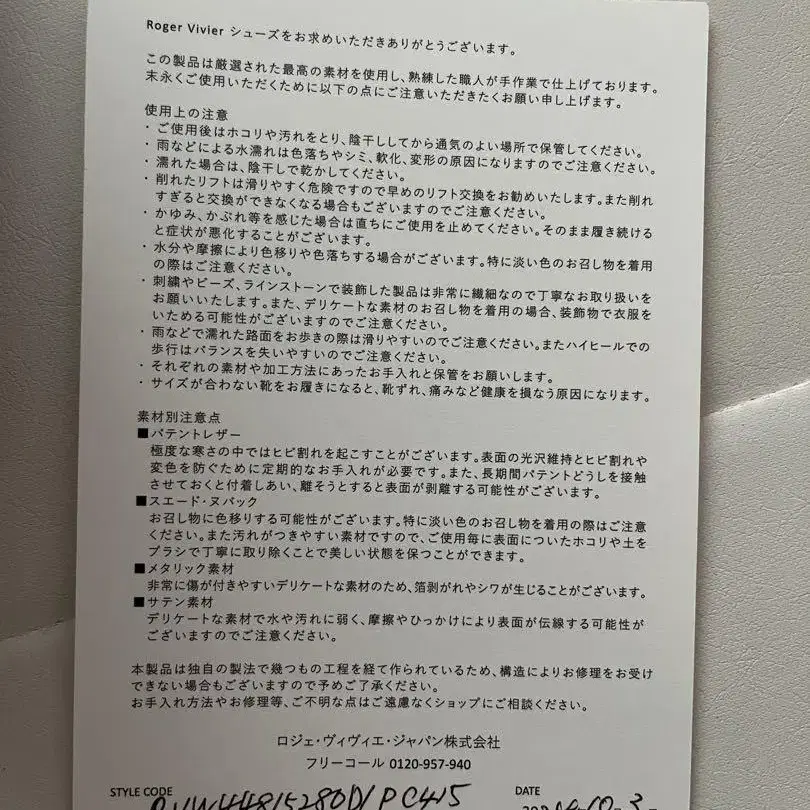 Roger Vivier シューズをお求めいただきありがとうございます。
この製品は厳選された最高の素材を使用し、熟練した職人が手作業で仕上げております。
末永くご使用いただくために以下の点にご注意いただきたくお願い申し上げます。
使用上の注意
・ご使用後はホコリや汚れをとり、陰干ししてから通気のよい場所で保管してください。
・雨などによる水濡れは色落ちやシミ、軟化、変形の原因になりますのでご注意ください。
・濡れた場合は、陰干しで乾かしてください。
・削れたリフトは滑りやすく危険ですので早めのリフト交換をお勧めいたします。また削れ
すぎると交換ができなくなる場合もございますのでご注意ください。
・かゆみ、かぶれ等を感じた場合は直ちにご使用を止めてください。そのまま履き続ける
と症状が悪化することがございます。
・水分や摩擦により色移りや色落ちする場合がございます。特に淡い色のお召し物を着用
の際はご注意ください。
・刺繍やビーズ、ラインストーンで装飾した製品は非常に繊細なので丁寧なお取り扱いを
お願いいたします。また、デリケートな素材のお召し物を着用の場合、装飾物で衣服を
いためる可能性がございますのでご注意ください。
・雨などで濡れた路面をお歩きの際は滑りやすいのでご注意ください。またハイヒールでの
歩行はバランスを失いやすいのでご注意ください。
・それぞれの素材や加工方法にあったお手入れと保管をお願いします。
・サイズが合わない靴をお履きになると、靴ずれ、痛みなど健康を損なう原因になります。
素材別注意点
■パテントレザー
極度な寒さの中ではヒビ割れを起こすことがございます。表面の光沢維持とヒビ割れや
変色を防ぐために定期的なお手入れが必要です。また、長期間パテントどうしを接触
させておくと付着しあい、離そうとすると表面が剥離する可能性がございます。
■スエード・ヌバック
お召し物に色移りする可能性がございます。特に淡い色のお召し物を着用の際はご注意
ください。また汚れがつきやすい素材ですので、ご使用毎に表面についたホコリや土を
ブラシで丁寧に取り除くことで美しい状態を保つことができます。
■メタリック素材
非常に傷が付きやすいデリケートな素材のため、箔剥がれやシワが生じることがございます。
■サテン素材
デリケートな素材で水や汚れに弱く、摩擦やひっかけにより表面が伝線する可能性が
ございますのでご注意ください。
本製品は独自の製法で幾つもの工程を経て作られているため、構造によりお修理をお受け
できない場合もございますので予めご了承ください。
お手入れ方法やお修理等、ご不明な点はご遠慮なくショップにご相談ください。
ロジェ・ヴィヴィエ・ジャパン株式会社
フリーコール 0120-957-940
STYLE CODE DATE